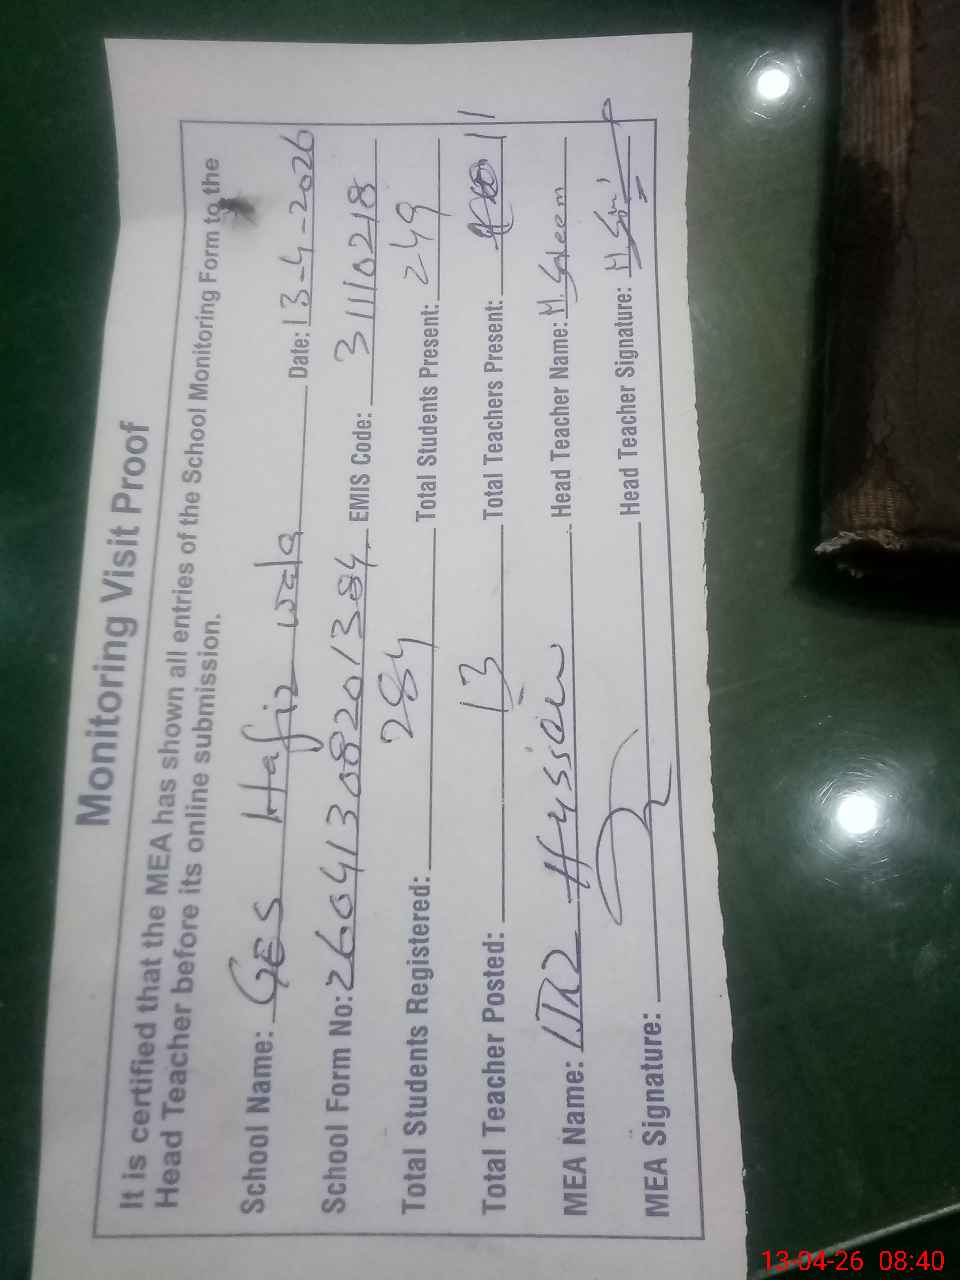 Monitoring Visit Proof
It is certified that the MEA has shown all entries of the School Monitoring Form to the
Head Teacher before its online submission.
School Name: GES Hafiz wala Date: 13-4-2026
School Form No: 26041308201384 EMIS Code: 31110218
Total Students Registered: 284 Total Students Present: 249
Total Teacher Posted: 13 Total Teachers Present: 11
MEA Name: Hussain Head Teacher Name: M. Saleem
MEA Signature: Head Teacher Signature:
13-04-26 08:40